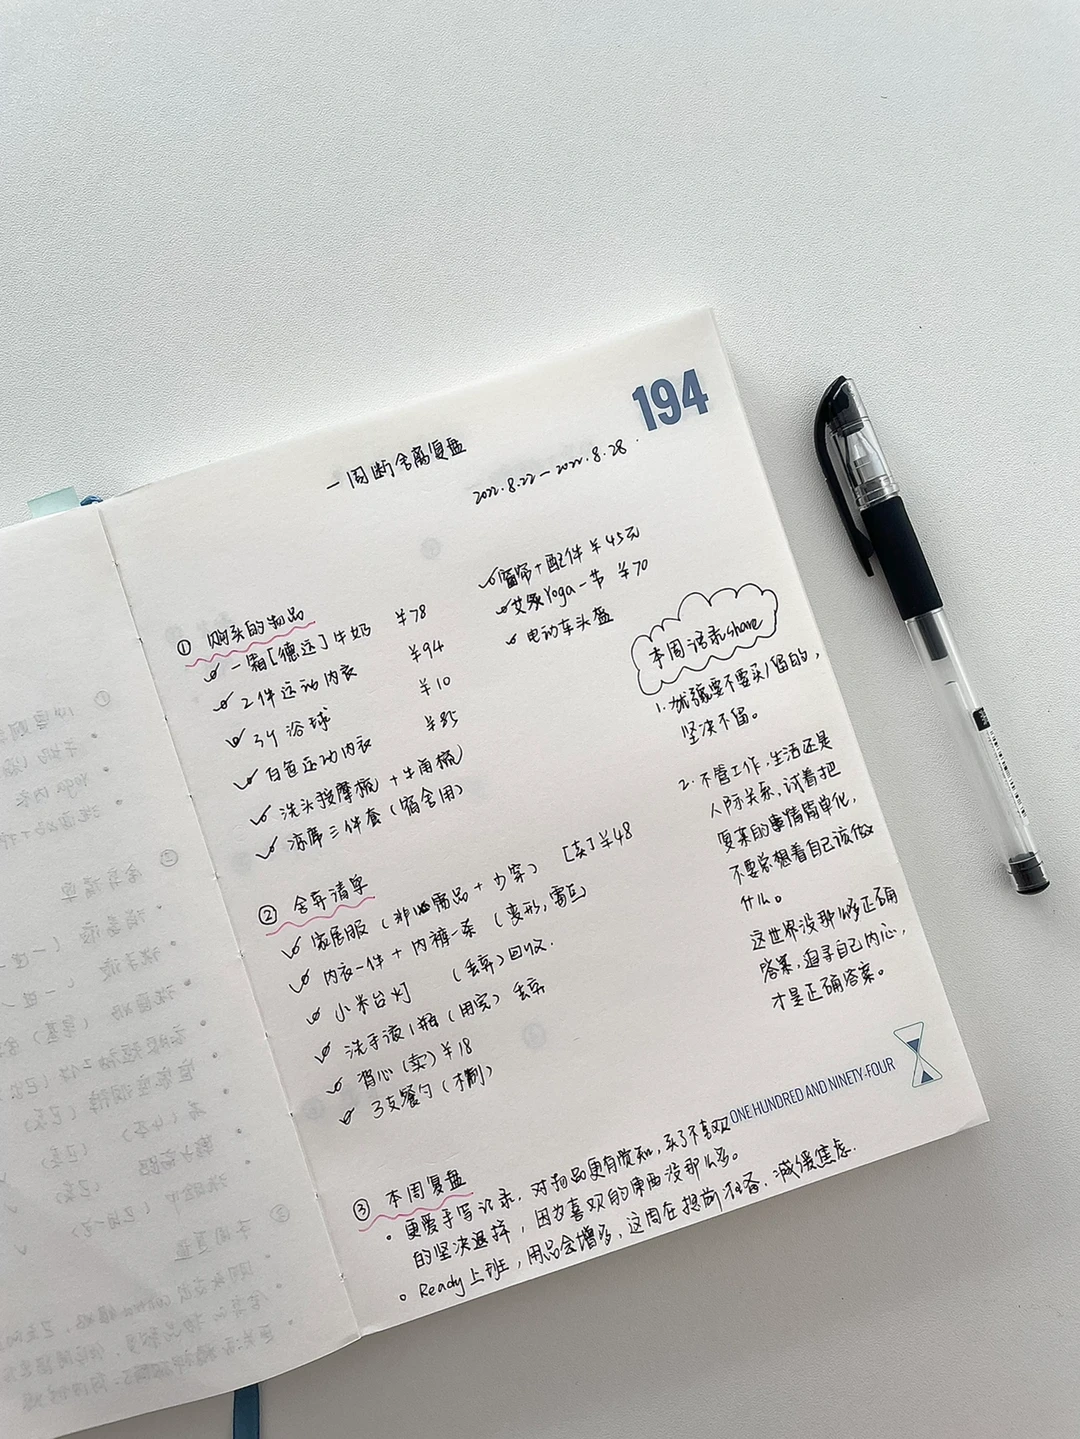 194
一周断舍离复盘
2022.8.22—2022.8.28.
① 购买的物品
一箱[德运]牛奶 ¥78
2件运动内衣 ¥94
3个浴球 ¥10
白色运动内衣 ¥85
洗头按摩梳+牛角梳
床三件套(宿舍用)
窗帘+配件 ¥45元
艾扬Yoga一节 ¥70
电动车头盔
② 舍弃清单
家居服(非必需品+少穿) [卖]¥48
内衣一件+内裤一条(变形,雷区)
小米台灯 (丢弃)回收.
洗手液1瓶(用完) 丢弃
背心(卖)¥18
3支餐勺(木制)
本周语录share
1. 犹豫要不要买/留的,
坚决不留。
2. 不管工作,生活还是
人际关系,试着把
复杂的事情简单化,
不要总想着自己该做
什么。
这世界没那么多正确
答案,追寻自己内心,
才是正确答案。
ONE HUNDRED AND NINETY-FOUR
③ 本周复盘
• 更爱手写记录,对物品更有觉知,买了不喜欢
的坚决退掉,因为喜欢的东西没那么多。
• Ready上班,用品会增多,这周在提前准备,减缓焦虑.